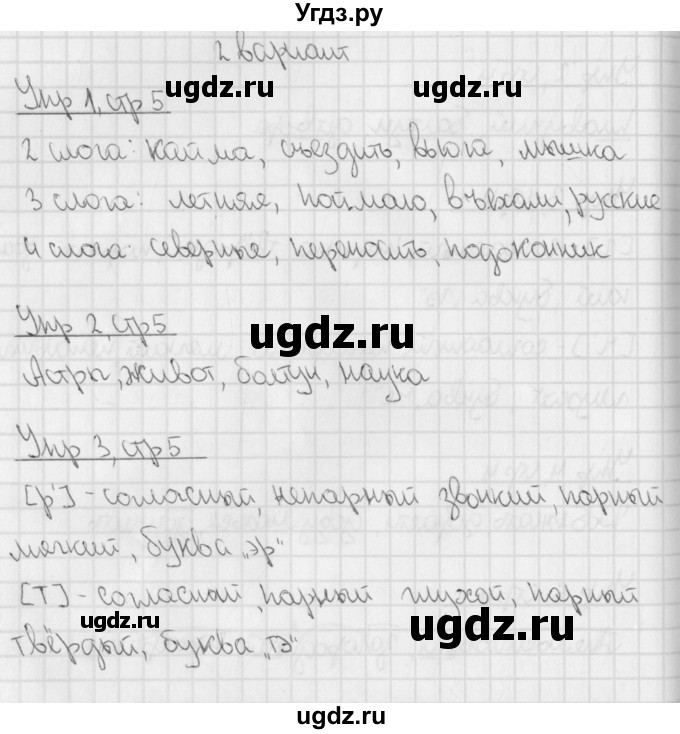 Угдз.ру
2 вариант
Упр 1, стр 5
ugdz.ru ugdz.ru
2 слога: кайма, съездить, вьюга, мышка
3 слога: летняя, поймаю, въехали, русские
4 слога: северные, переносить, подоконник
Упр 2 стр 5
ugdz.ru
Астры, живот, болтун, наука
Упр 3, стр 5
ugdz.ru
[р'] - согласный, непарный звонкий, парный
мягкий, буква „эр"
[т] - согласный, парный глухой, парный
твёрдый, буква „тэ"
ugdz.ru ugdz.ru
ugdz.ru